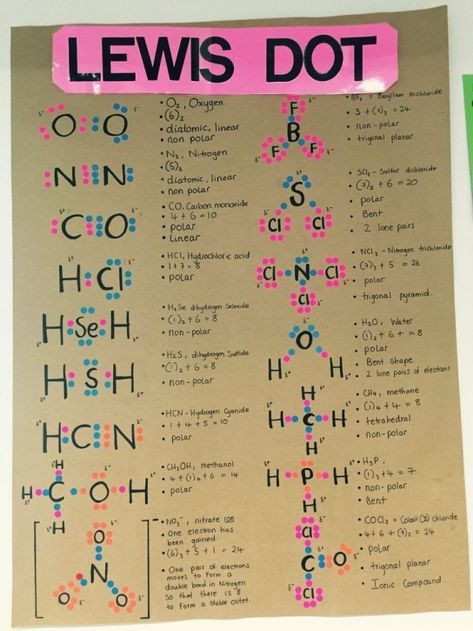 LEWIS DOT
O O
• O₂, Oxygen
• (6)₂
• diatomic, linear
• non polar
N N
• N₂, Nitrogen
• (5)₂
• diatomic, linear
• non polar
C O
• CO, Carbon monoxide
• 4 + 6 = 10
• polar
• Linear
H Cl
• HCl, Hydrochloric acid
• 1 + 7 = 8
• polar
H Se H
• H₂Se dihydrogen Selenide
• (1)₂ + 6 = 8
• non-polar
H S H
• H₂S, dihydrogen Sulfide
• (1)₂ + 6 = 8
• non-polar
H C N
• HCN - Hydrogen Cyanide
• 1 + 4 + 5 = 10
• polar
H
H C O H
H
• CH₃OH, methanol
• 4 + (1)₄ + 6 = 14
• polar
O
N
O O
• NO₃⁻, nitrate ion
• One electron has
been gained.
• (6)₃ + 5 + 1 = 24
• One pair of electrons
moves to form a
double bond in Nitrogen
So that there is 8
to form a stable octet.
F
B
F F
trichloride
• 3 + (7)₃ = 24
• non-polar
• trigonal planar
S
Cl Cl
• SCl₂ - Sulfur dichloride
• (7)₂ + 6 = 20
• polar
• Bent
• 2 lone pairs
Cl N Cl
Cl
• NCl₃ - Nitrogen trichloride
• (7)₃ + 5 = 26
• polar
• trigonal pyramid
O
H H
• H₂O, Water
• (1)₂ + 6 = 8
• polar
• Bent Shape
• 2 lone pairs of electrons
H
H C H
H
• CH₄, methane
• (1)₄ + 4 = 8
• tetrahedral
• non-polar
H P H
H
• H₃P,
• (1)₃ + 4 = 7
• non-polar
• Bent
Cl
C O
Cl
• COCl₂ = Cobalt (II) chloride
• 4 + 6 + (7)₂ = 24
• polar
• trigonal planar
• Ionic Compound.